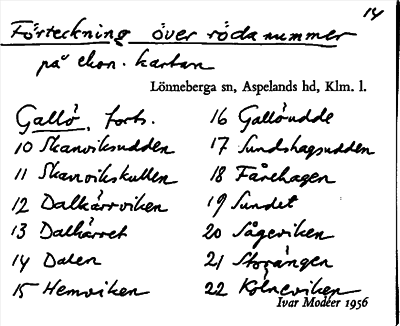 14
Förteckning över röda nummer
på ekon. kartan
Lönneberga sn, Aspelands hd, Klm. l.
Gallö, forts.
10 Skanviksudden
11 Skanvikskullen
12 Dalkärrviken
13 Dalkärret
14 Dalen
15 Hemviken
16 Gallöudde
17 Sundshagsudden
18 Fårhagen
19 Sundet
20 Sågeviken
21 Storängen
22 Kölneviken
Ivar Modéer 1956